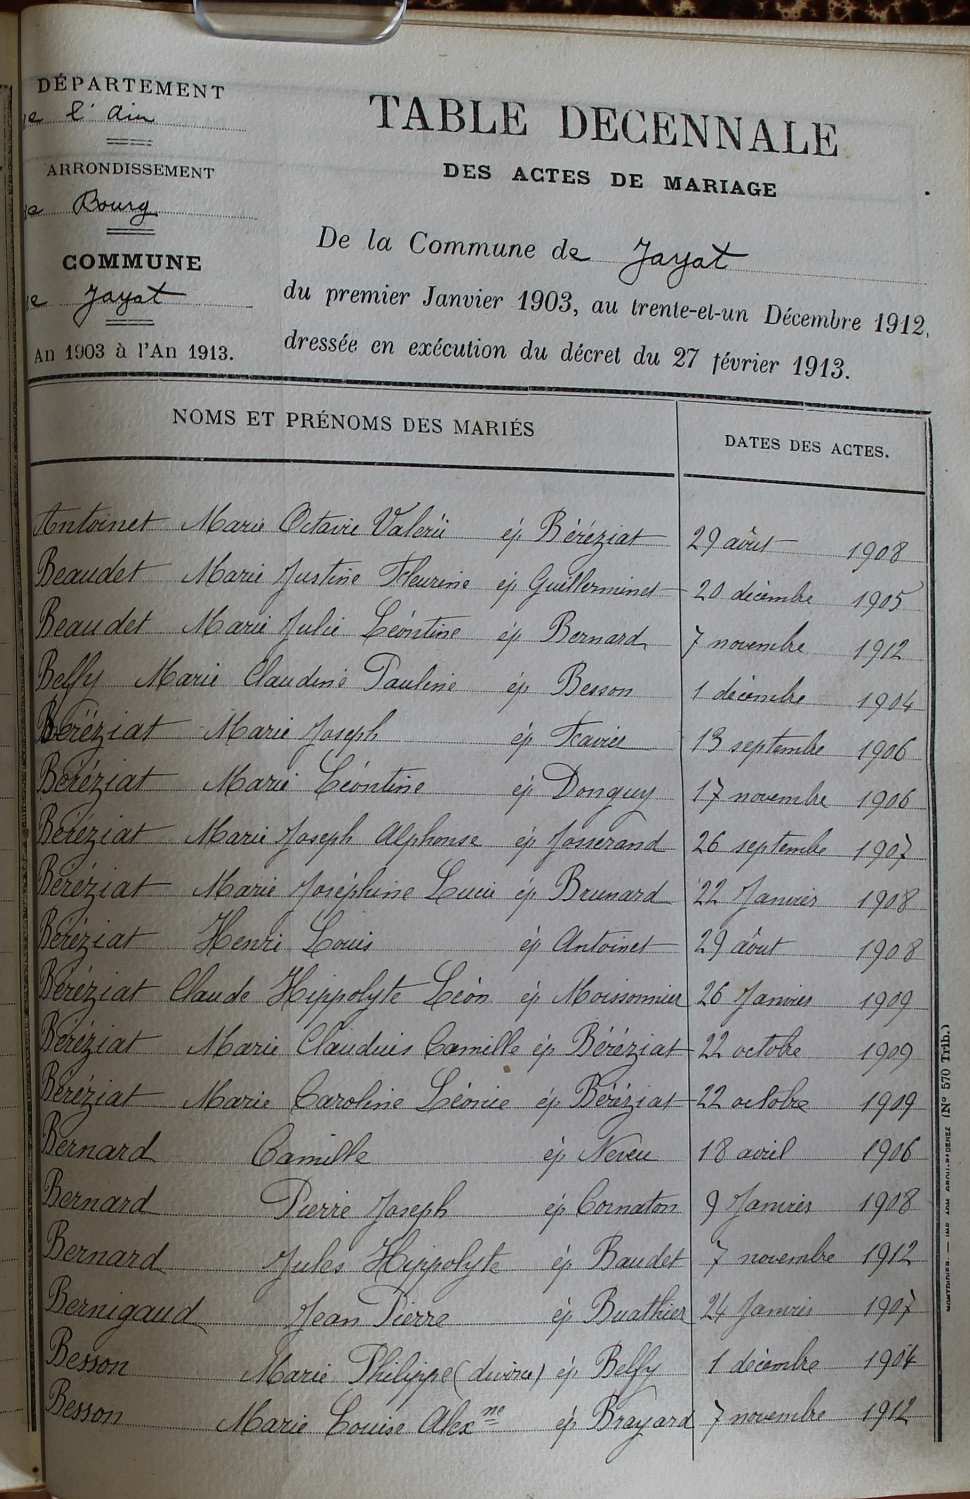 DÉPARTEMENT
de l'Ain
ARRONDISSEMENT
de Bourg
COMMUNE
de Jayat
An 1903 à l'An 1913.
TABLE DECENNALE
DES ACTES DE MARIAGE
De la Commune de Jayat
du premier Janvier 1903, au trente-et-un Décembre 1912,
dressée en exécution du décret du 27 février 1913.
NOMS ET PRÉNOMS DES MARIÉS DATES DES ACTES.
Antoinet Marie Octavie Valérie ép Béréziat 29 août 1908
Beaudet Marie Justine Fleurine ép Guillerminet 20 décembre 1905
Beaudet Marie Julie Léontine ép Bernard 7 novembre 1912
Belfy Marie Claudine Pauline ép Besson 1 décembre 1904
Béréziat Marie Joseph ép Favier 13 septembre 1906
Béréziat Marie Léontine ép Donguy 17 novembre 1906
Béréziat Marie Joseph Alphonse ép Josserand 26 septembre 1907
Béréziat Marie Joséphine Lucie ép Brunard 22 Janvier 1908
Béréziat Henri Louis ép Antoinet 29 août 1908
Béréziat Claude Hippolyte Léon ép Moissonnier 26 Janvier 1909
Béréziat Marie Claudius Camille ép Béréziat 22 octobre 1909
Béréziat Marie Caroline Léonie ép Béréziat 22 octobre 1909
Bernard Camille ép Neveu 18 avril 1906
Bernard Pierre Joseph ép Cornaton 9 Janvier 1908
Bernard Jules Hippolyte ép Baudet 7 novembre 1912
Bernigaud Jean Pierre ép Buathier 24 Janvier 1907
Besson Marie Philippe (divorcé) ép Belfy 1 décembre 1904
Besson Marie Louise Alexne ép Brayard 7 novembre 1912
(No 570 Trib.)